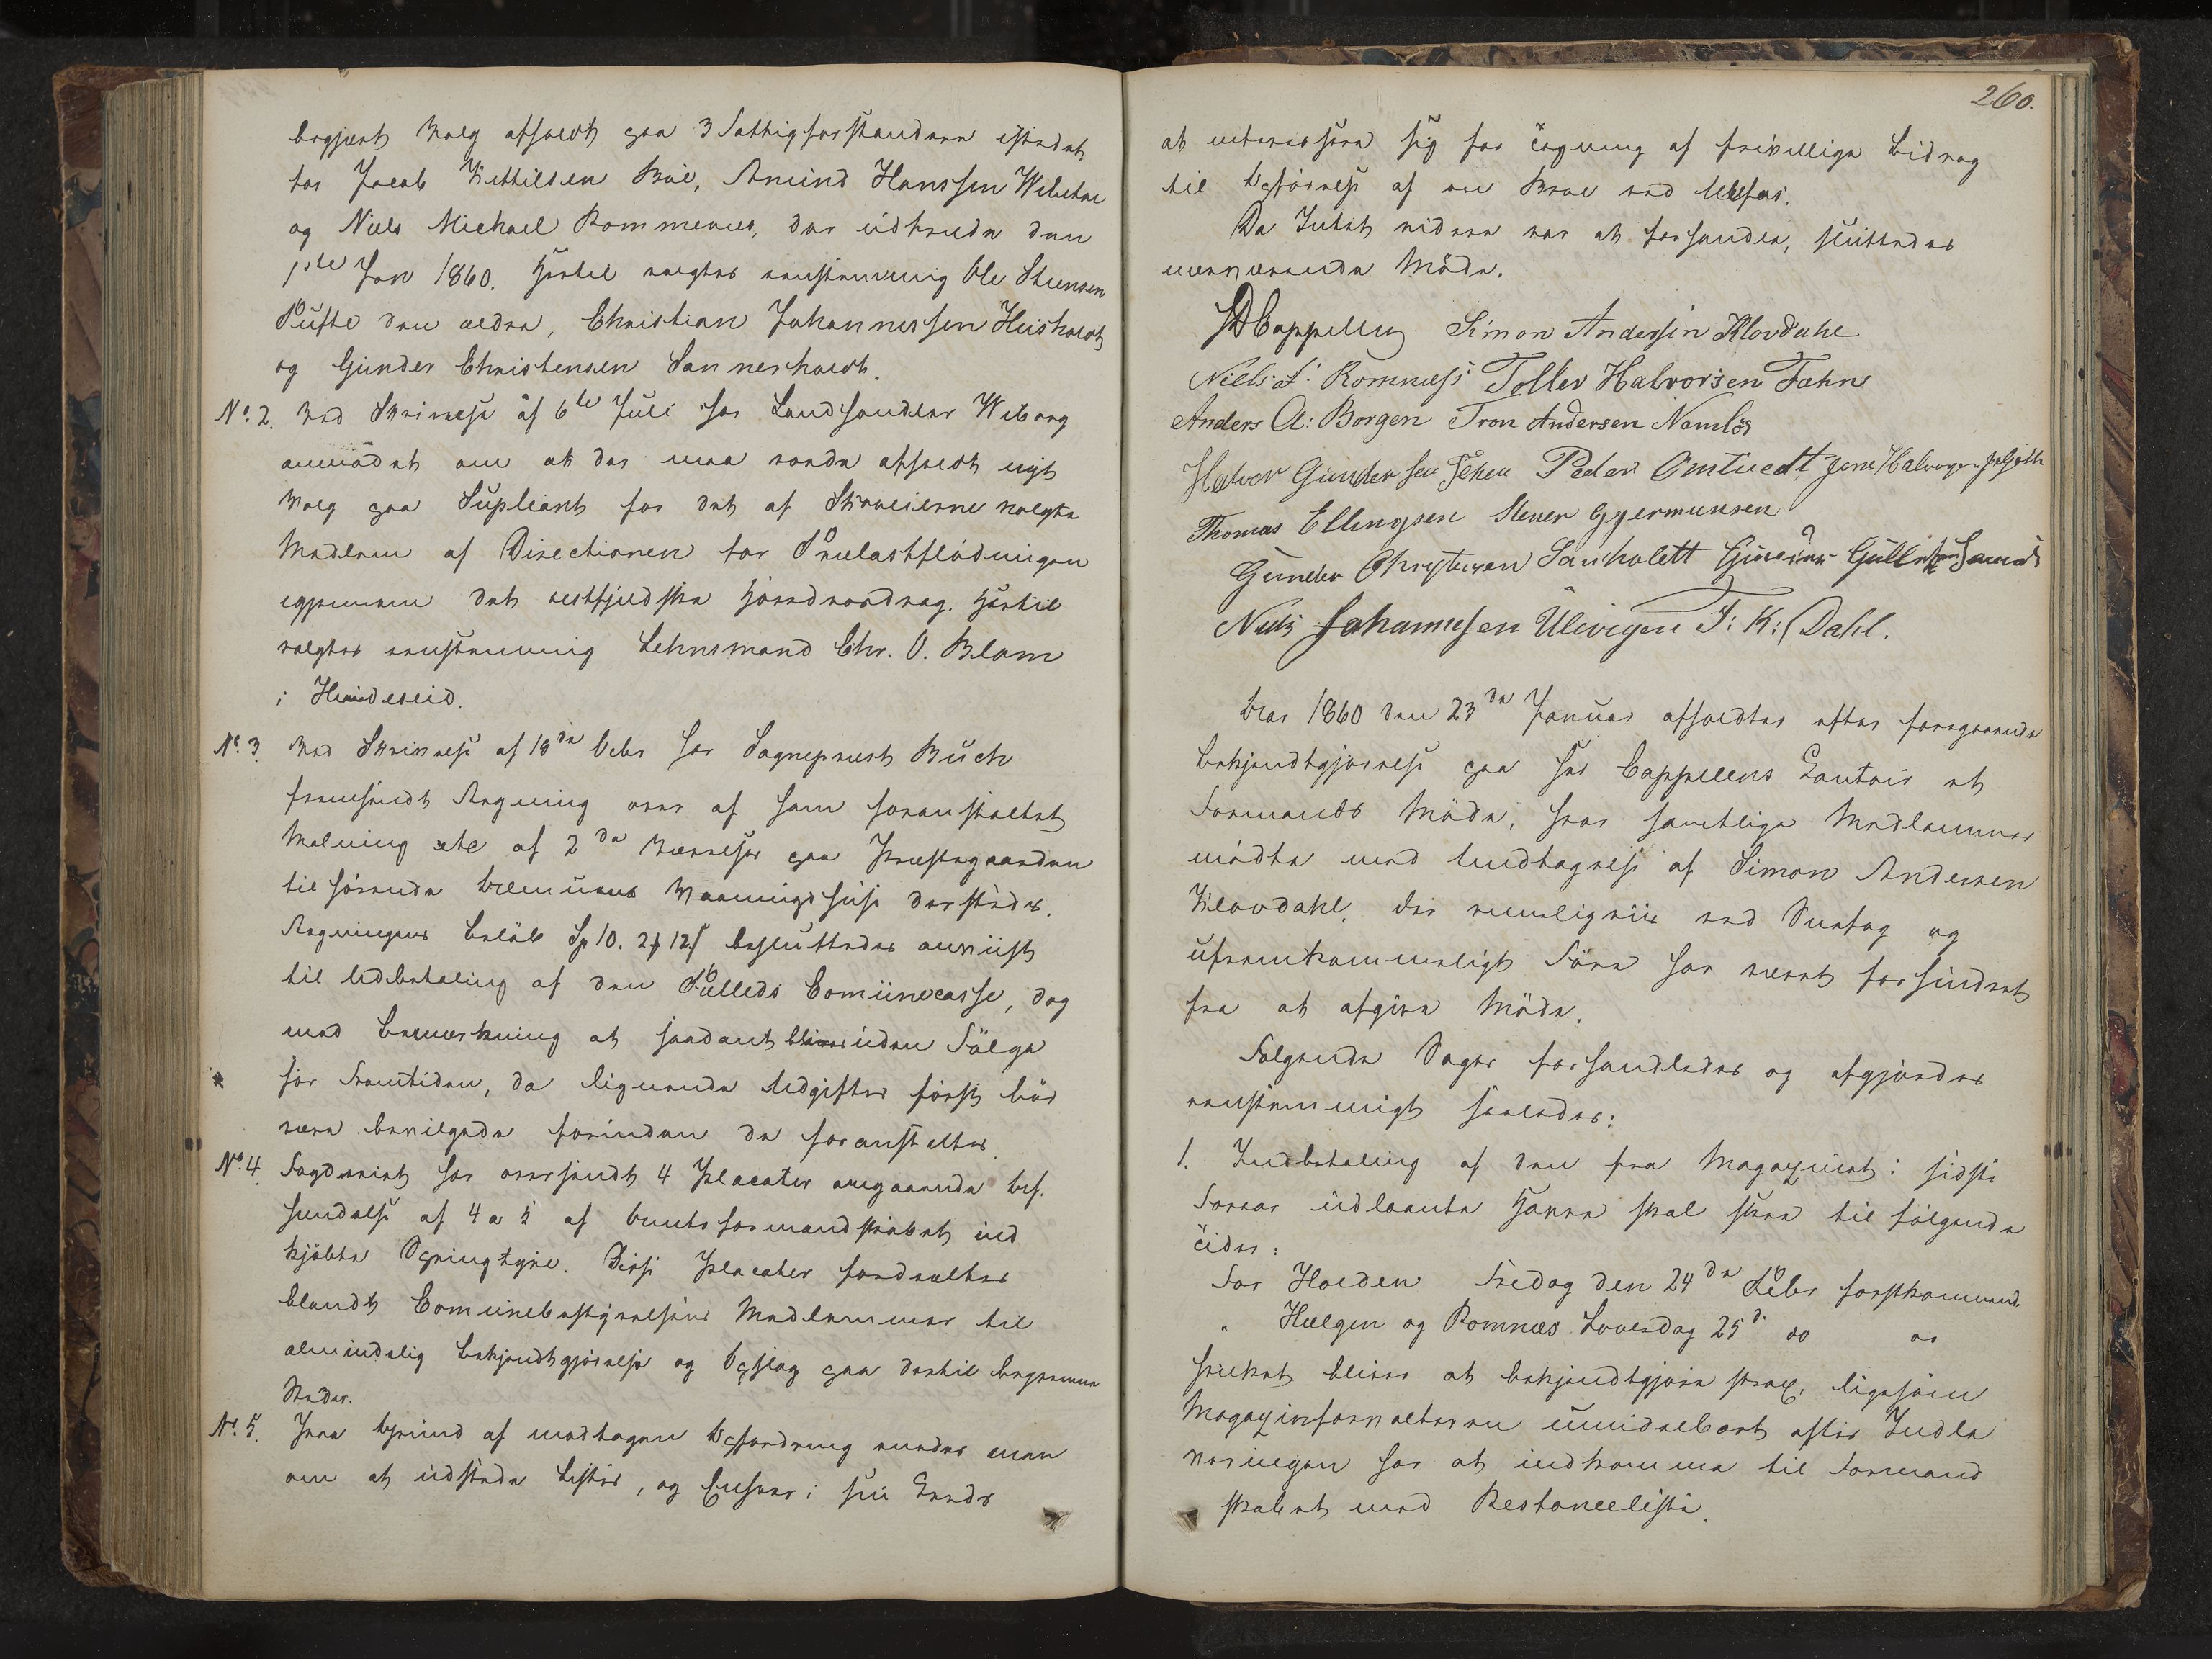 begjært Valg afholdt paa 3 Fattigforstandere istedet
for Jacob Kettilsen Bøe, Amund Hanssen
og Niels Michael Rommenæs, der udtræde den
1ste Jan 1860. Hertil valgtes eenstemmig Ole Stensen
Tufte den ældre, Christian Johannessen Heisholdt
og Gunder Christensen Sannerholdt.
No. 2. Ved Skrivelse af 6te Juli har Landhandler Wiborg
anmodet om at der maa vorde afholdt nyt
Valg paa Supleant for det af Skoveierne valgte
Medlem af Directionen for Trælastflødningen
igjennem det vestfjeldske Hovedvasdrag. Hertil
valgtes eenstemmig Lehnsmand Chr. O. Blom
i Hvideseid.
No. 3. Ved Skrivelse af 18de Octbr har Sogneprest Buch
fremsendt Regning over af ham foranstaltet
Maling etc af 2de Værelser paa Præstegaarden
tilhørende Vaaningshuse dersteds.
Regningens Beløb Sp 10. 2 12 besluttedes anviist
til Udbetaling af den Commünecasse, dog
med Bemærkning at saadant bliver uden Følge
for Fremtiden, da lignende Udgifter først bør
være bevilgede forinden de foranstaltes.
No. 4. Fogderiet har oversendt 4 Placater angaaende
handelse af 4 a 5 af Amtsformandskabet ind
kjøbte Disse Placater fordeeltes
blandt Comünebestyrelsens Medlemmer til
almindelig Bekjendtgjørelse og Opslag paa dertil beqvemme
Steder.
No. 5. Paa Grund af modtagen Opfordring enedes man
om at udstede Lister, og Enhver i sin Kreds
260.
at interessere sig for Tegning af frivillige Bidrag
til Opførelse af en Broe ved Ulefos.
Da Intet videre var at forhandle, sluttedes
nærværende Møde.
Cappelen Simon Andersen Klovdahl
Niels J. Romnæss Tollev Halvorsen Fahne
Anders A: Borgen Tron Andersen Namløs
Halvor Gundersen Teken Peder Omtvedt
Thomas Ellingsen Stener Gjermunsen
Gunder Christensen
Niels Johannesen Ulevigen T: K: Dahl.
Aar 1860 den 23de Januar afholdtes efter foregaaende
Bekjendtgjørelse paa Hr Cappelens Contoir et
Formands Møde, hvor samtlige Medlemmer
mødte med Undtagelse af Simon Andersen
Klovdahl, der rimeligviis ved og
ufremkommeligt Føre har været forhindret
fra at afgive Møde.
Følgende Sager forhandledes og afgjordes
eenstemmigt saaledes:
1. Indbetaling af den fra Magazinet i sidste
Foraar udlaante Havre skal skee til følgende
Tider:
For Holden Fredag den 24de Febr førstkommende
" Helgen og Romnæs Løverdag 25d. do do
hvilket bliver at bekjendtgjøre strax, ligesom
Magazinforvalteren umidelbart efter Indle
veringen har at indkomme til Formand
skabet med Restanceliste.